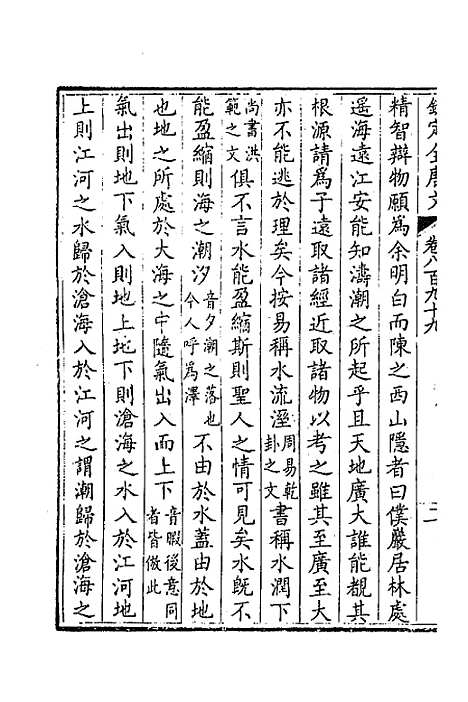 欽定全唐文 卷八百九十九 二
精智辯物願爲余明白而陳之西山隱者曰僕嚴居林處
遥海遠江安能知濤潮之所起乎且天地廣大誰能覩其
根源請爲子遠取諸經近取諸物以考之雖其至廣至大
亦不能逃於理矣今按易稱水流溼周易乾卦之文書稱水潤下
尚書洪範之文俱不言水能盈縮斯則聖人之情可見矣水旣不
能盈縮則海之潮汐音夕潮之落也今人呼爲澤不由於水蓋由於地
也地之所處於大海之中隨氣出入而上下音暇後意同者皆倣此
氣出則地下氣入則地上地下則滄海之水入於江河地
上則江河之水歸於滄海入於江河之謂潮歸於滄海之